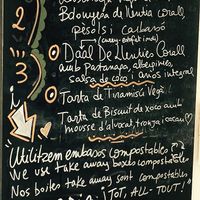 2
Bolonyesa de llentia corall,
pèsols i carbassó
(curry, ... )
3
Daal De Llenties Corall
amb Pastanaga, albergínies,
salsa de coco i arròs integral
i
Tarta de Tiramisú Vegà
Tarta de Biscuit de xoco amb
mousse d'alvocat, taronja i cacau
"Utilitzem embasos compostables"
We use take away boxes compostables
Nos boites take away sont compostables
¡TOT, ALL-TOUT!